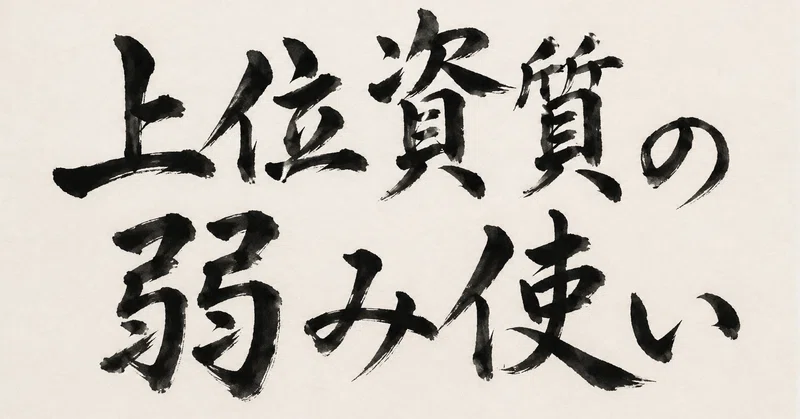 上位資質の
弱み使い